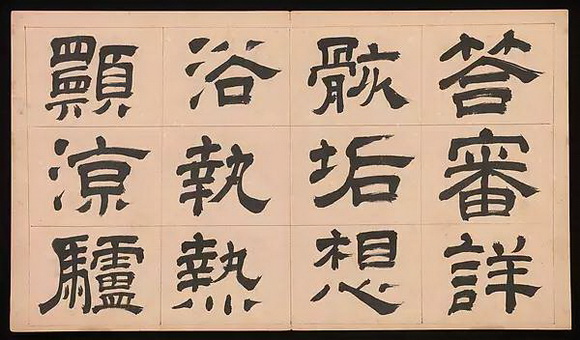 答審詳
骸垢想
浴執熱
願涼驢